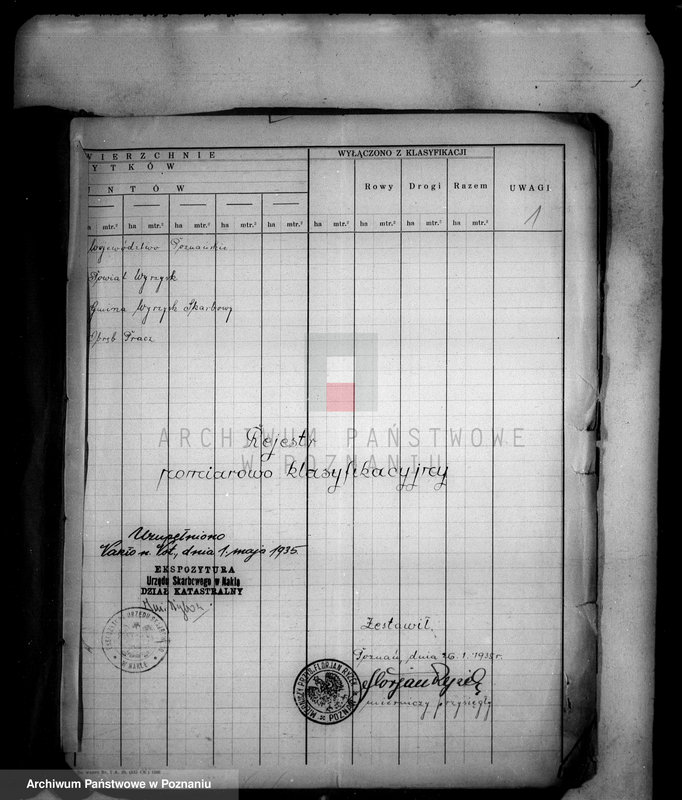 WIERZCHNIE
YTKÓW
UNTÓW
WYŁĄCZONO Z KLASYFIKACJI
Rowy Drogi Razem
UWAGI
1
a mtr.² ha mtr.² ha mtr.² ha mtr.² ha mtr.² ha mtr.² ha mtr.² ha mtr.² ha mtr.²
Województwo Poznańskie
Powiat Wyrzysk
Gmina Wyrzysk Skarbowy
Obręb Pracz
ARCHIWUM PAŃSTWOWE
W POZNANIU
Rejestr
pomiarowo klasyfikacyjny
Uzupełniono
Nakło n. Not., dnia 1. maja 1935.
EKSPOZYTURA
Urzędu Skarbowego w Nakle
DZIAŁ KATASTRALNY
W NAKLE
Zestawił
Poznań, dnia 26.1.1935 r.
Florjan Ryzek
mierniczy przysięgły
MIERNICZY PRZYS. FLORJAN RYZEK
POZNAŃ
Archiwum Państwowe w Poznaniu